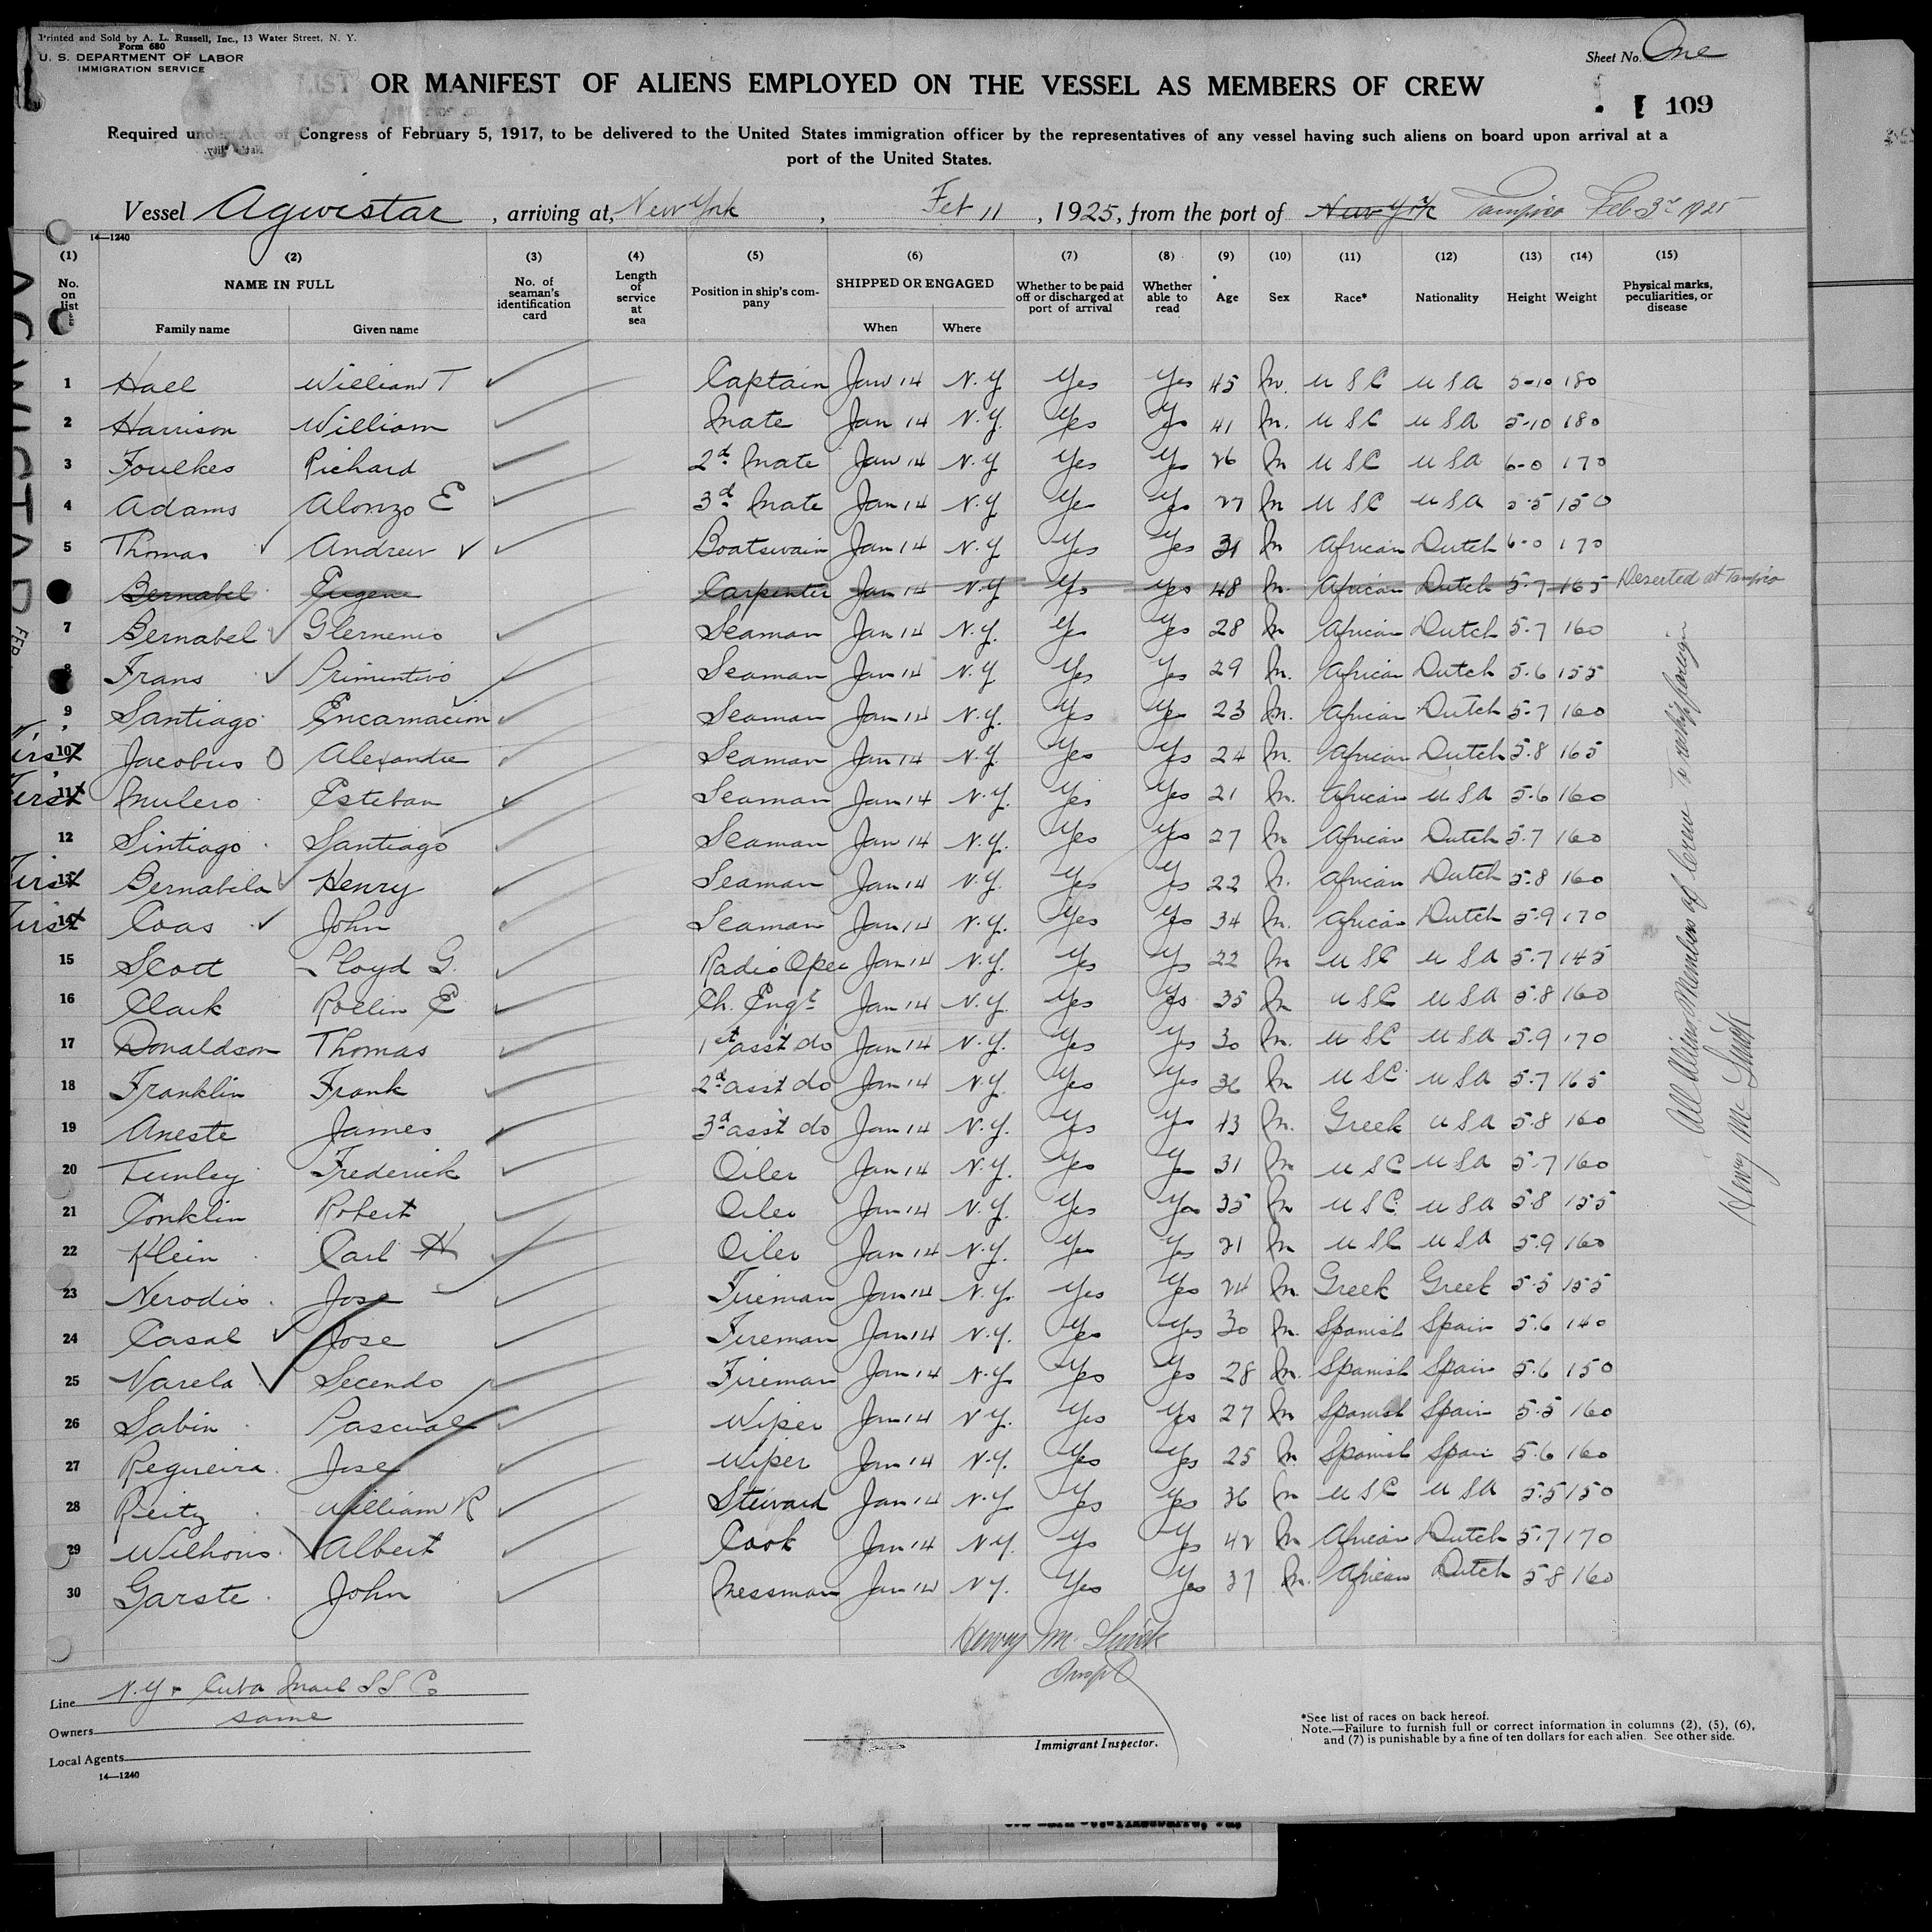 Printed and Sold by A. L. Russell, Inc., 13 Water Street, N. Y.
Form 680
U. S. DEPARTMENT OF LABOR
IMMIGRATION SERVICE
Sheet No. One
LIST OR MANIFEST OF ALIENS EMPLOYED ON THE VESSEL AS MEMBERS OF CREW
109
Required under Act of Congress of February 5, 1917, to be delivered to the United States immigration officer by the representatives of any vessel having such aliens on board upon arrival at a
port of the United States.
Vessel Agwistar, arriving at, New York, Feb 11, 1925, from the port of New York Tampico Feb 3rd 1925
14—1240
(1) (2) (3) (4) (5) (6) (7) (8) (9) (10) (11) (12) (13) (14) (15)
No. on list NAME IN FULL Family name Given name No. of seaman's identification card Length of service at sea Position in ship's company SHIPPED OR ENGAGED When Where Whether to be paid off or discharged at port of arrival Whether able to read Age Sex Race* Nationality Height Weight Physical marks, peculiarities, or disease
1 Hall William T Captain Jan 14 N.Y. Yes Yes 45 M. U S C U S A 5-10 180
2 Harrison William Mate Jan 14 N.Y. Yes Yes 41 M. U S C U S A 5-10 180
3 Foulkes Richard 2d Mate Jan 14 N.Y. Yes Yes 26 M U S C U S A 6-0 170
4 Adams Alonzo E 3d Mate Jan 14 N.Y Yes Yes 27 M U S C U S A 5-5 150
5 Thomas Andrew Boatswain Jan 14 N.Y. Yes Yes 31 M African Dutch 6-0 170
Bernabel Eugene Carpenter Jan 14 N.Y Yes Yes 48 M. African Dutch 5-7 165 Deserted at Tampico
7 Bernabel Glemenis Seaman Jan 14 N.Y. Yes Yes 28 M African Dutch 5-7 160
8 Frans Primintivo Seaman Jan 14 N.Y Yes Yes 29 M. African Dutch 5-6 155
9 Santiago Encarnacion Seaman Jan 14 N.Y. Yes Yes 23 M. African Dutch 5-7 160
First 10 Jacobus O Alexandre Seaman Jan 14 N.Y. Yes Yes 24 M. African Dutch 5-8 165
First 11 Mulero Esteban Seaman Jan 14 N.Y. Yes Yes 21 M. African U S A 5-6 160
12 Sintiago Santiago Seaman Jan 14 N.Y. Yes Yes 27 M African Dutch 5-7 160
First 13 Bernabela Henry Seaman Jan 14 N.Y. Yes Yes 22 M. African Dutch 5-8 160
First 14 Coas John Seaman Jan 14 N.Y. Yes Yes 34 M. African Dutch 5-9 170
15 Scott Lloyd G. Radio Oper Jan 14 N.Y. Yes Yes 22 M U S C U S A 5-7 145
16 Clark Rollin E Ch. Engr Jan 14 N.Y. Yes Yes 35 M U S C U S A 5-8 160
17 Donaldson Thomas 1st asst do Jan 14 N.Y. Yes Yes 30 M. U S C U S A 5-9 170
18 Franklin Frank 2d asst do Jan 14 N.Y. Yes Yes 36 M U S C U S A 5-7 165
19 Aneste James 3d asst do Jan 14 N.Y. Yes Yes 43 M. Greek U S A 5-8 160
20 Tunley Frederick Oiler Jan 14 N.Y. Yes Yes 31 M U S C U S A 5-7 160
21 Conklin Robert Oiler Jan 14 N.Y. Yes Yes 35 M U S C U S A 5-8 155
22 Klein Carl H Oiler Jan 14 N.Y. Yes Yes 21 M U S C U S A 5-9 160
23 Nerodis Jose Fireman Jan 14 N.Y. Yes Yes 24 M Greek Greek 5-5 155
24 Casal Jose Fireman Jan 14 N.Y. Yes Yes 30 M. Spanish Spain 5-6 140
25 Varela Secendo Fireman Jan 14 N.Y. Yes Yes 28 M. Spanish Spain 5-6 150
26 Sabin Pascual Wiper Jan 14 N.Y. Yes Yes 27 M Spanish Spain 5-5 160
27 Regueira Jose Wiper Jan 14 N.Y. Yes Yes 25 M. Spanish Spain 5-6 160
28 Reitz William R Steward Jan 14 N.Y. Yes Yes 36 M U S C U S A 5-5 150
29 Wilhous Albert Cook Jan 14 N.Y. Yes Yes 42 M African Dutch 5-7 170
30 Garste John Messman Jan 14 N.Y. Yes Yes 37 M. African Dutch 5-8 160
All Aliens Members of Crew to reship foreign
AGWISTAR
FEB
Line N.Y. & Cuba Mail S S Co
Owners same
Local Agents
14—1240
Immigrant Inspector.
*See list of races on back hereof.
Note.—Failure to furnish full or correct information in columns (2), (5), (6),
and (7) is punishable by a fine of ten dollars for each alien. See other side.